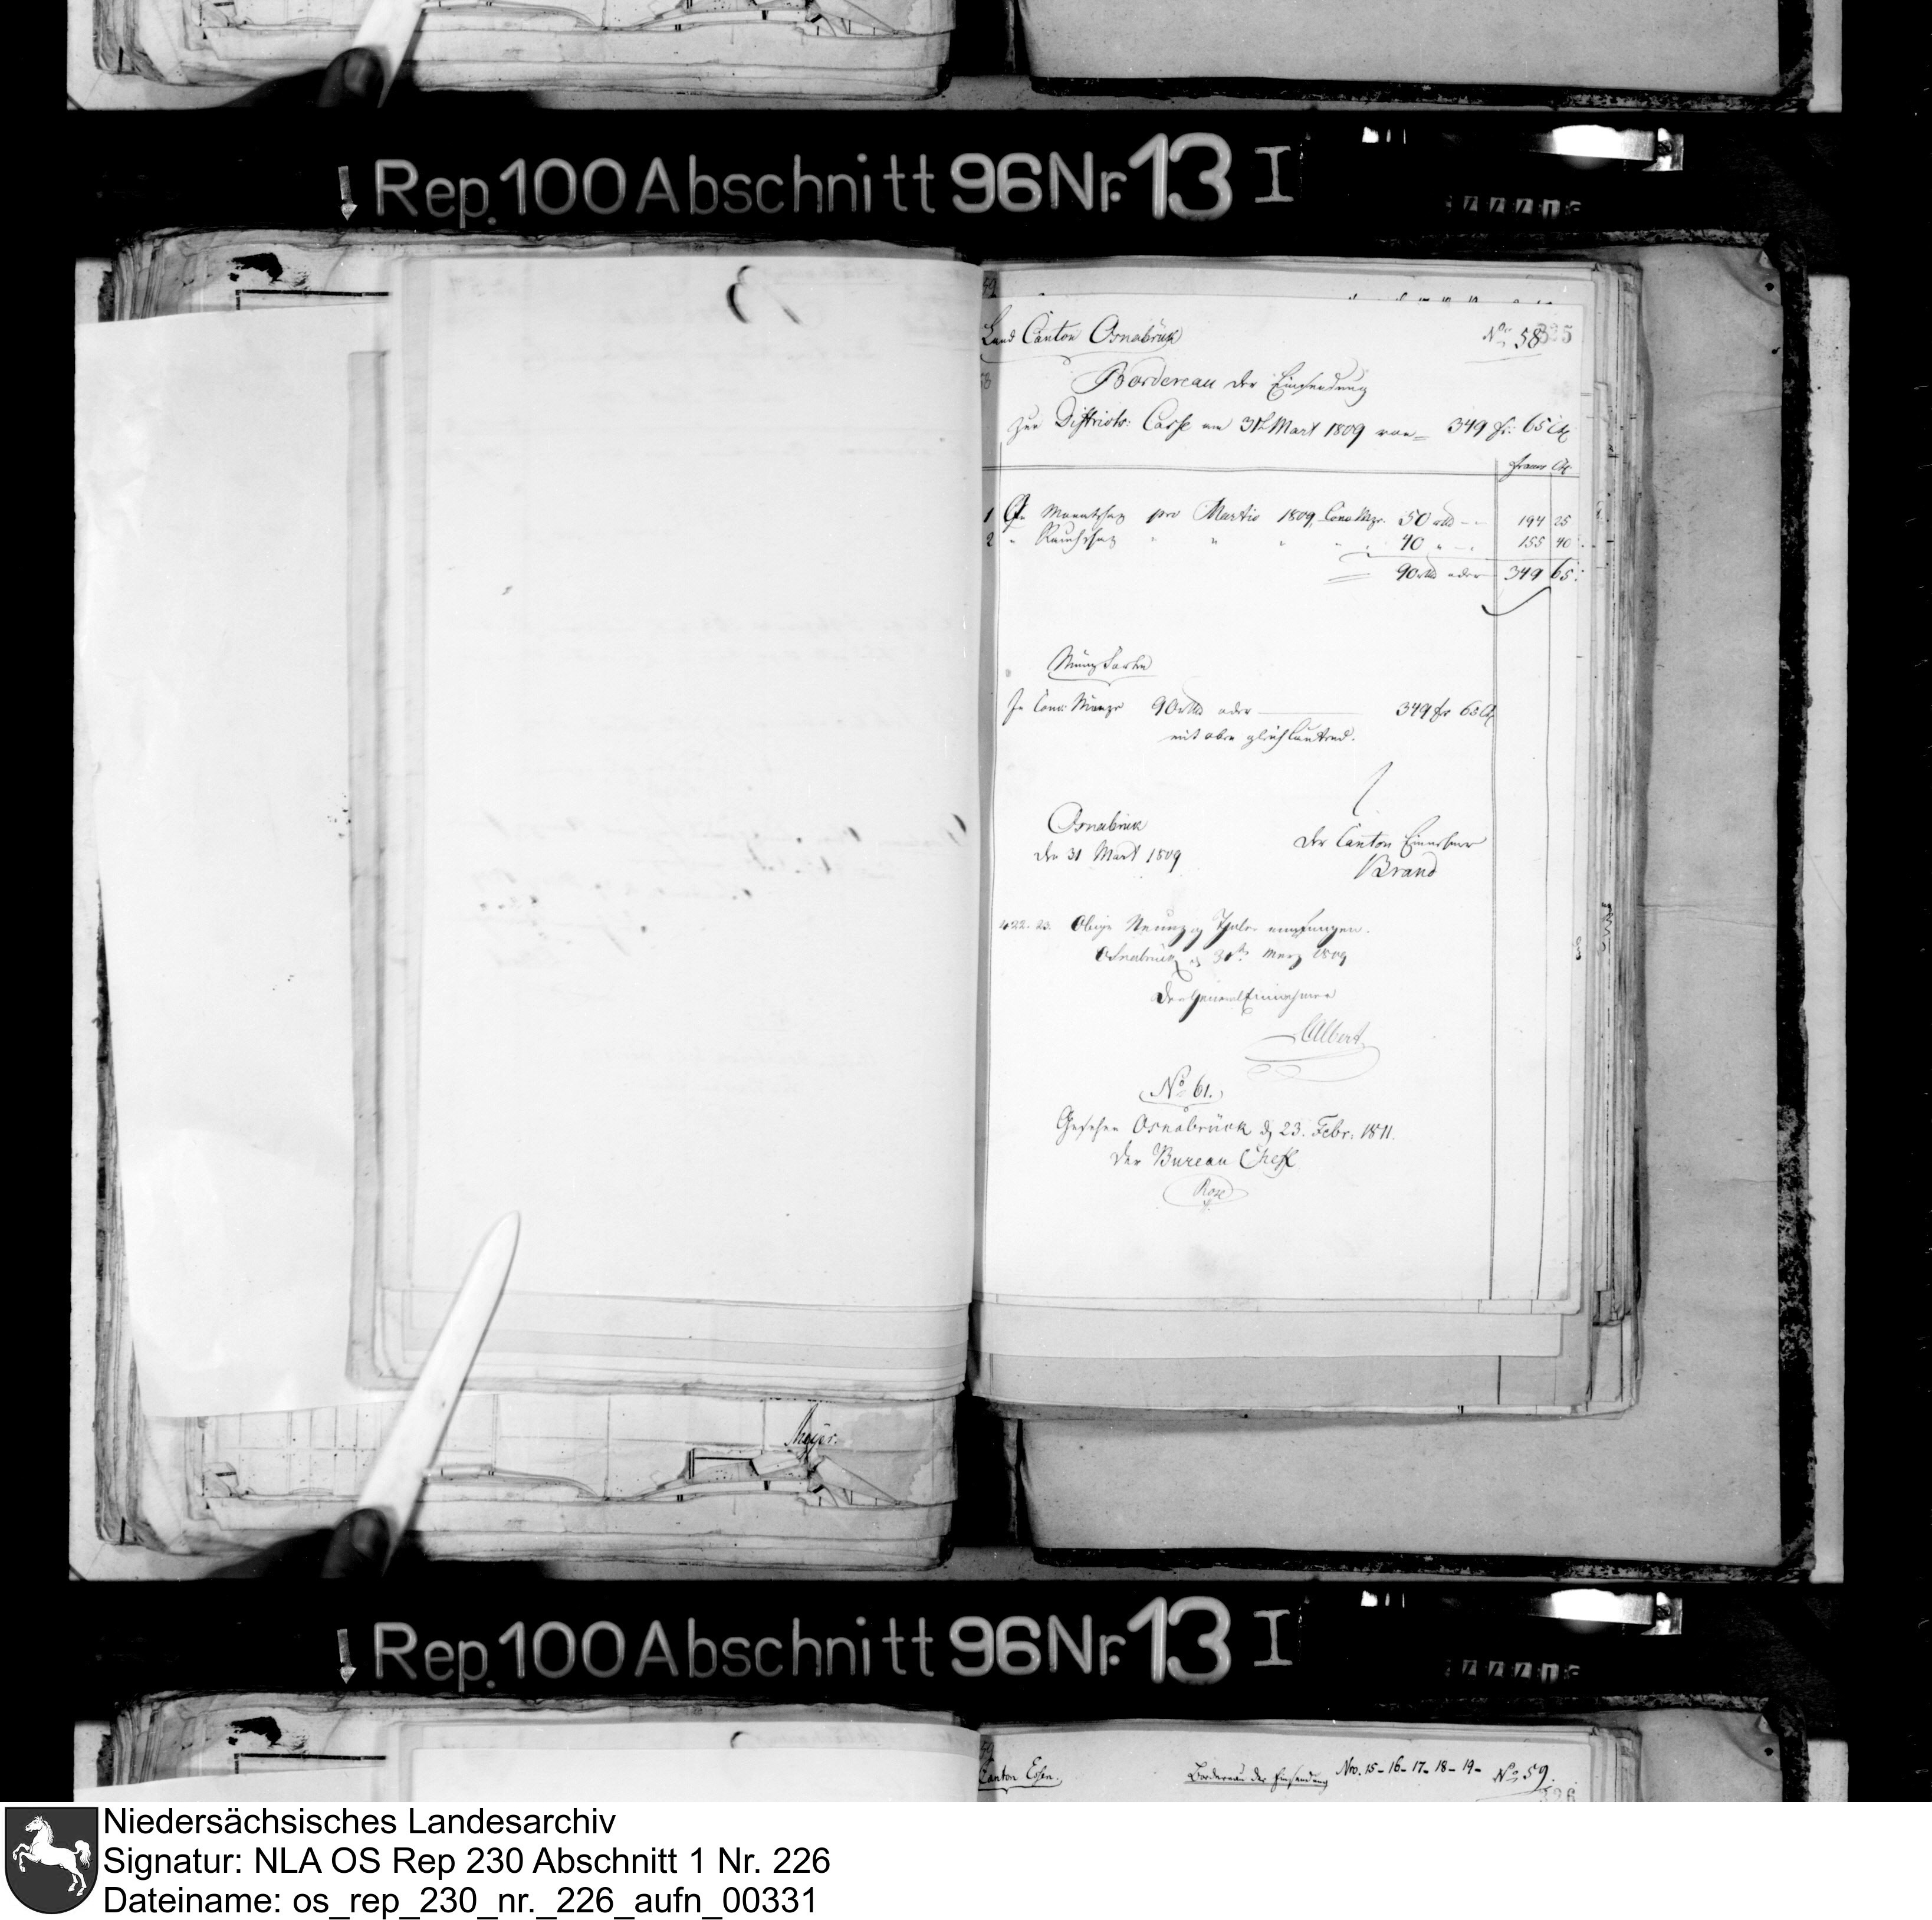 Rep. 100 Abschnitt 96 Nr. 13 I
Land Canton Osnabrük
No. 58
325
Bordereau der Einsendung
zur Districts: Casse am 31t Mart 1809 von 349 fr: 65 Ct
Francs Ct
1 An Monatschaz pro Martio 1809, Conv. Mze. 50 rthl -- 194 25
2 " Rauchschaz " " " " 40 " - 155 40
90 rthl oder 349 65
Münz Sorten
In Conv: Münze 90 rthl oder 349 fr 65 Ct
mit oben gleichlautend.
Osnabrük
den 31 Mart 1809
Der Canton Einnehmer
Brand
422. 23. Obige Neunzig Thaler empfangen.
Osnabrück d 31ten Merz 1809
Der General Einnehmer
Albert
No 61.
Gesehen Osnabrück d 23. Febr: 1811.
Der Bureau Cheff
Meyer.
Rep. 100 Abschnitt 96 Nr. 13 I
Canton Essen.
Bordereau der Einsendung Nro. 15 - 16 - 17 - 18 - 19 -
No 59.
326
Niedersächsisches Landesarchiv
Signatur: NLA OS Rep 230 Abschnitt 1 Nr. 226
Dateiname: os_rep_230_nr._226_aufn_00331